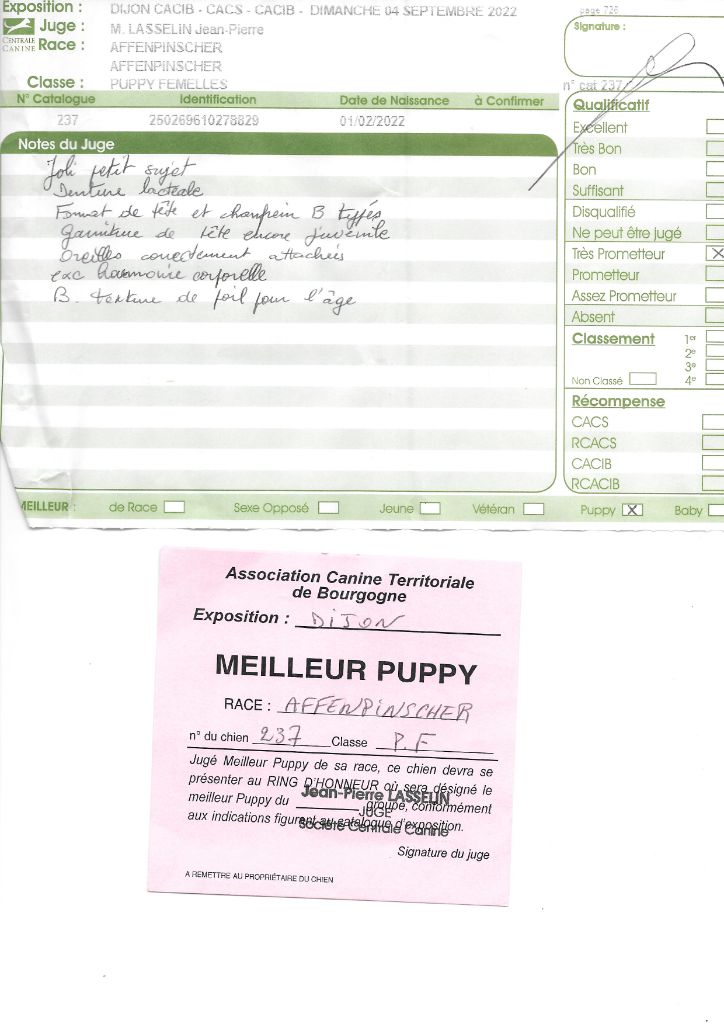 Exposition : DIJON CACIB - CACS - CACIB - DIMANCHE 04 SEPTEMBRE 2022
page 726
Juge : M. LASSELIN Jean-Pierre
Signature :
CENTRALE CANINE
Race : AFFENPINSCHER
AFFENPINSCHER
Classe : PUPPY FEMELLES
n° cat 237
N° Catalogue Identification Date de Naissance à Confirmer
237 250269610278829 01/02/2022
Notes du Juge
Joli petit sujet
Denture lactéale
Format de tête et chanfrein B typés
Garniture de tête encore juvenile
Oreilles correctement attachées
exc harmonie corporelle
B. texture de poil pour l'âge
Qualificatif
Excellent
Très Bon
Bon
Suffisant
Disqualifié
Ne peut être jugé
Très Prometteur X
Prometteur
Assez Prometteur
Absent
Classement 1er
2e
3e
Non Classé 4e
Récompense
CACS
RCACS
CACIB
RCACIB
MEILLEUR : de Race Sexe Opposé Jeune Vétéran Puppy X Baby
Association Canine Territoriale
de Bourgogne
Exposition : DIJON
MEILLEUR PUPPY
RACE : AFFENPINSCHER
n° du chien 237 Classe P.F
Jugé Meilleur Puppy de sa race, ce chien devra se
présenter au RING D'HONNEUR où sera désigné le
meilleur Puppy du groupe, conformément
aux indications figurant au catalogue d'exposition.
Jean-Pierre LASSELIN
JUGE
Société Centrale Canine
Signature du juge
A REMETTRE AU PROPRIÉTAIRE DU CHIEN